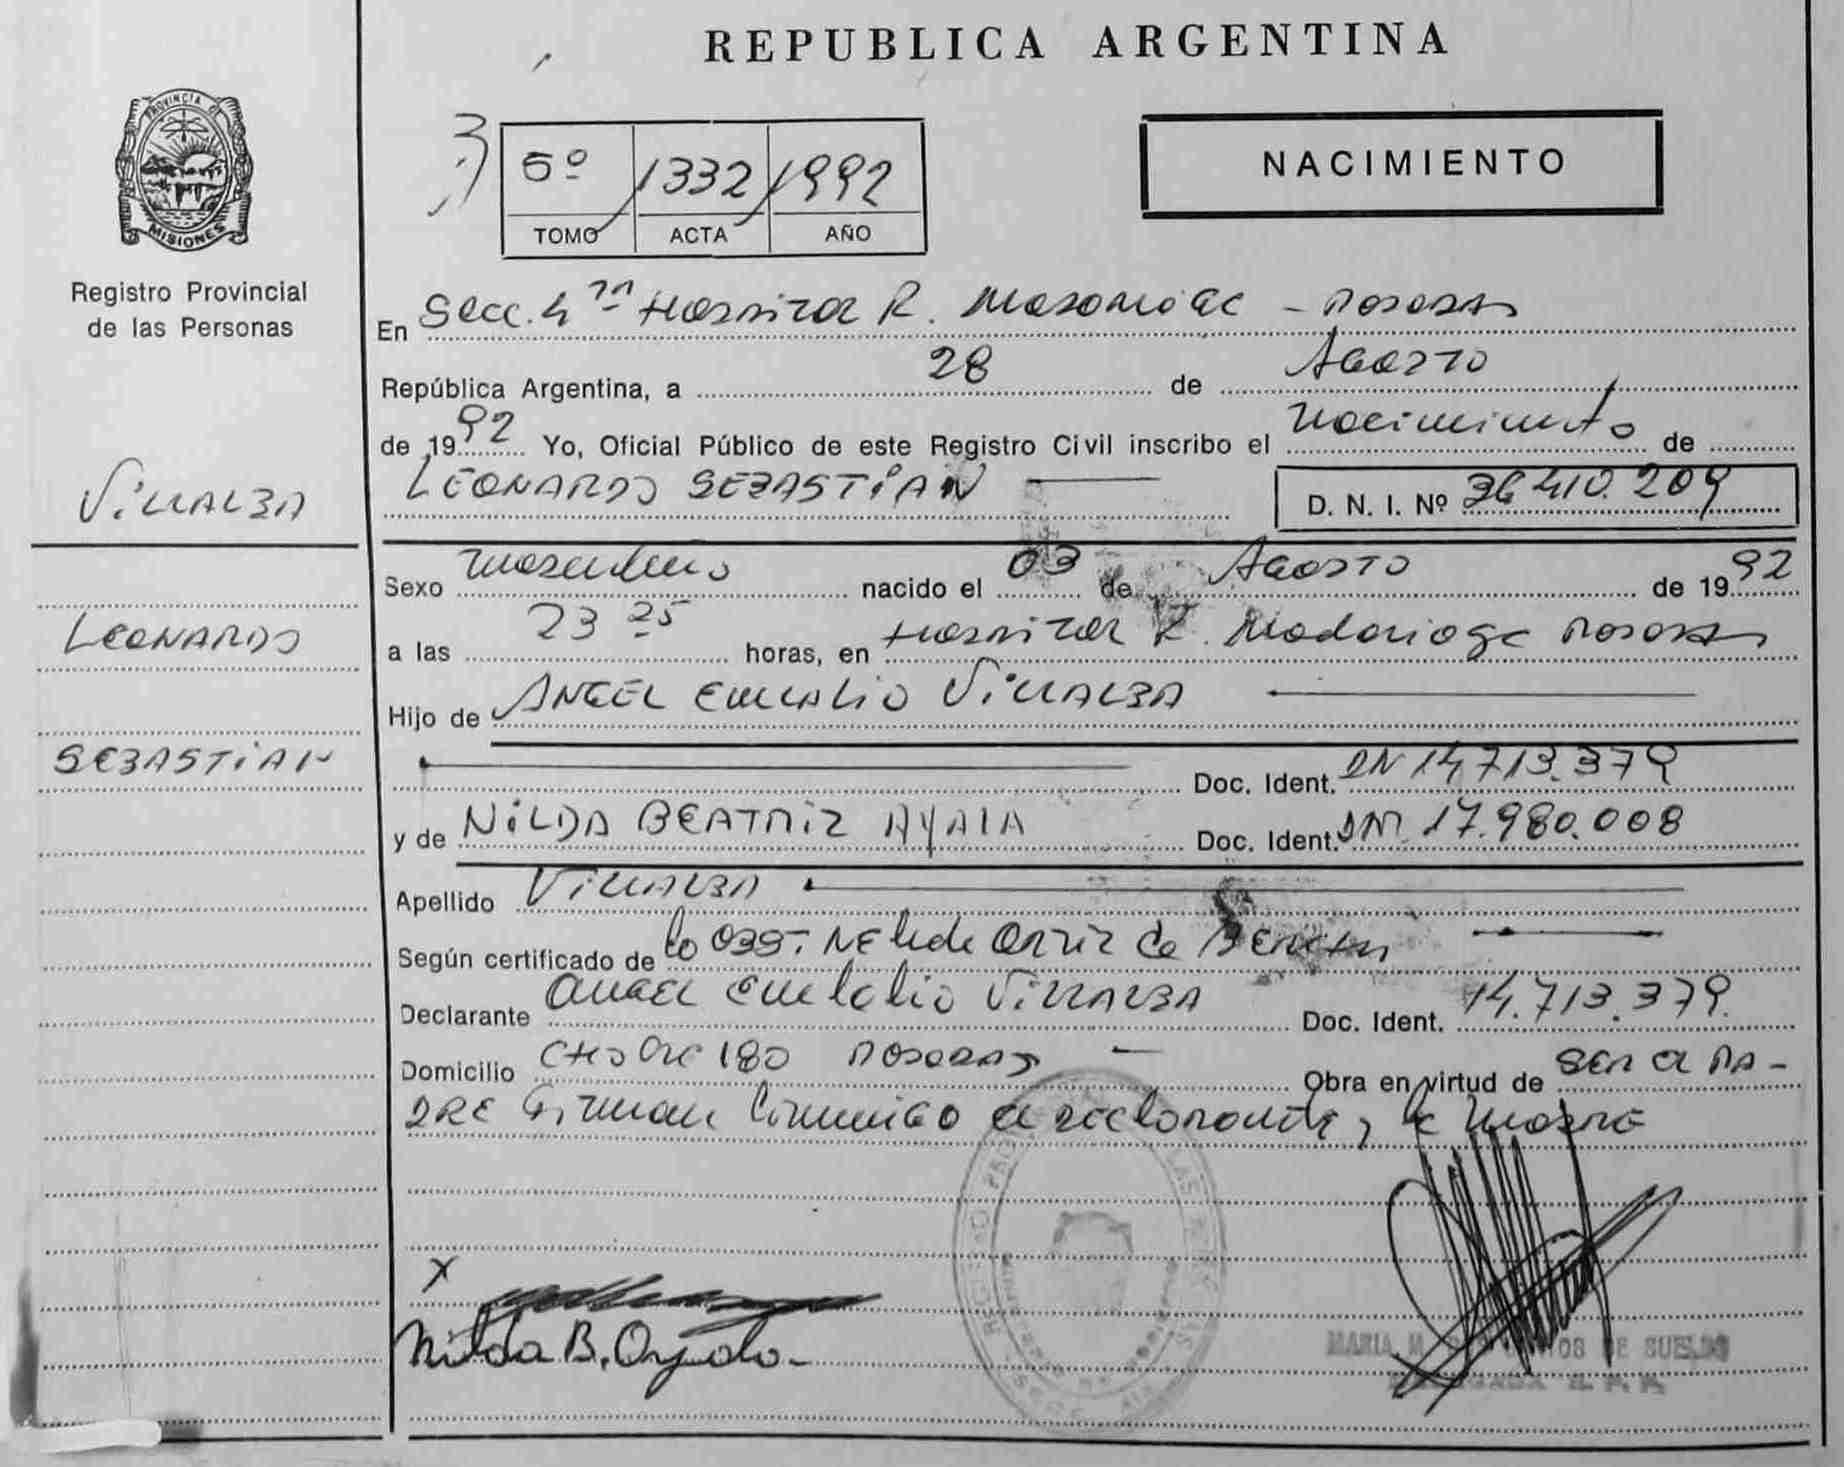 REPUBLICA ARGENTINA
PROVINCIA DE
MISIONES
Registro Provincial
de las Personas
5º 1332 1992
TOMO ACTA AÑO
NACIMIENTO
En Secc. 4ta Hospital R. Madariaga - Posadas
República Argentina, a 28 de Agosto
de 1992 Yo, Oficial Público de este Registro Civil inscribo el Nacimiento de
VILLALBA
LEONARDO SEBASTIAN
D. N. I. Nº 36.410.209
Sexo masculino nacido el 03 de Agosto de 1992
LEONARDO
a las 23 25 horas, en Hospital R. Madariaga Posadas
Hijo de ANGEL EULALIO VILLALBA
SEBASTIAN
Doc. Ident. DNI 14.713.379
y de NILDA BEATRIZ AYALA Doc. Ident. DNI. 17.980.008
Apellido VILLALBA
Según certificado de la obst. Nelida Ortiz de
Declarante Angel Eulalio VILLALBA Doc. Ident. 14.713.379.
Domicilio 180 Posadas Obra en virtud de ser el pa-
dre Firman conmigo el declarante y la madre
X
Nilda B. Ayala
MARIA M. DE SUELDO